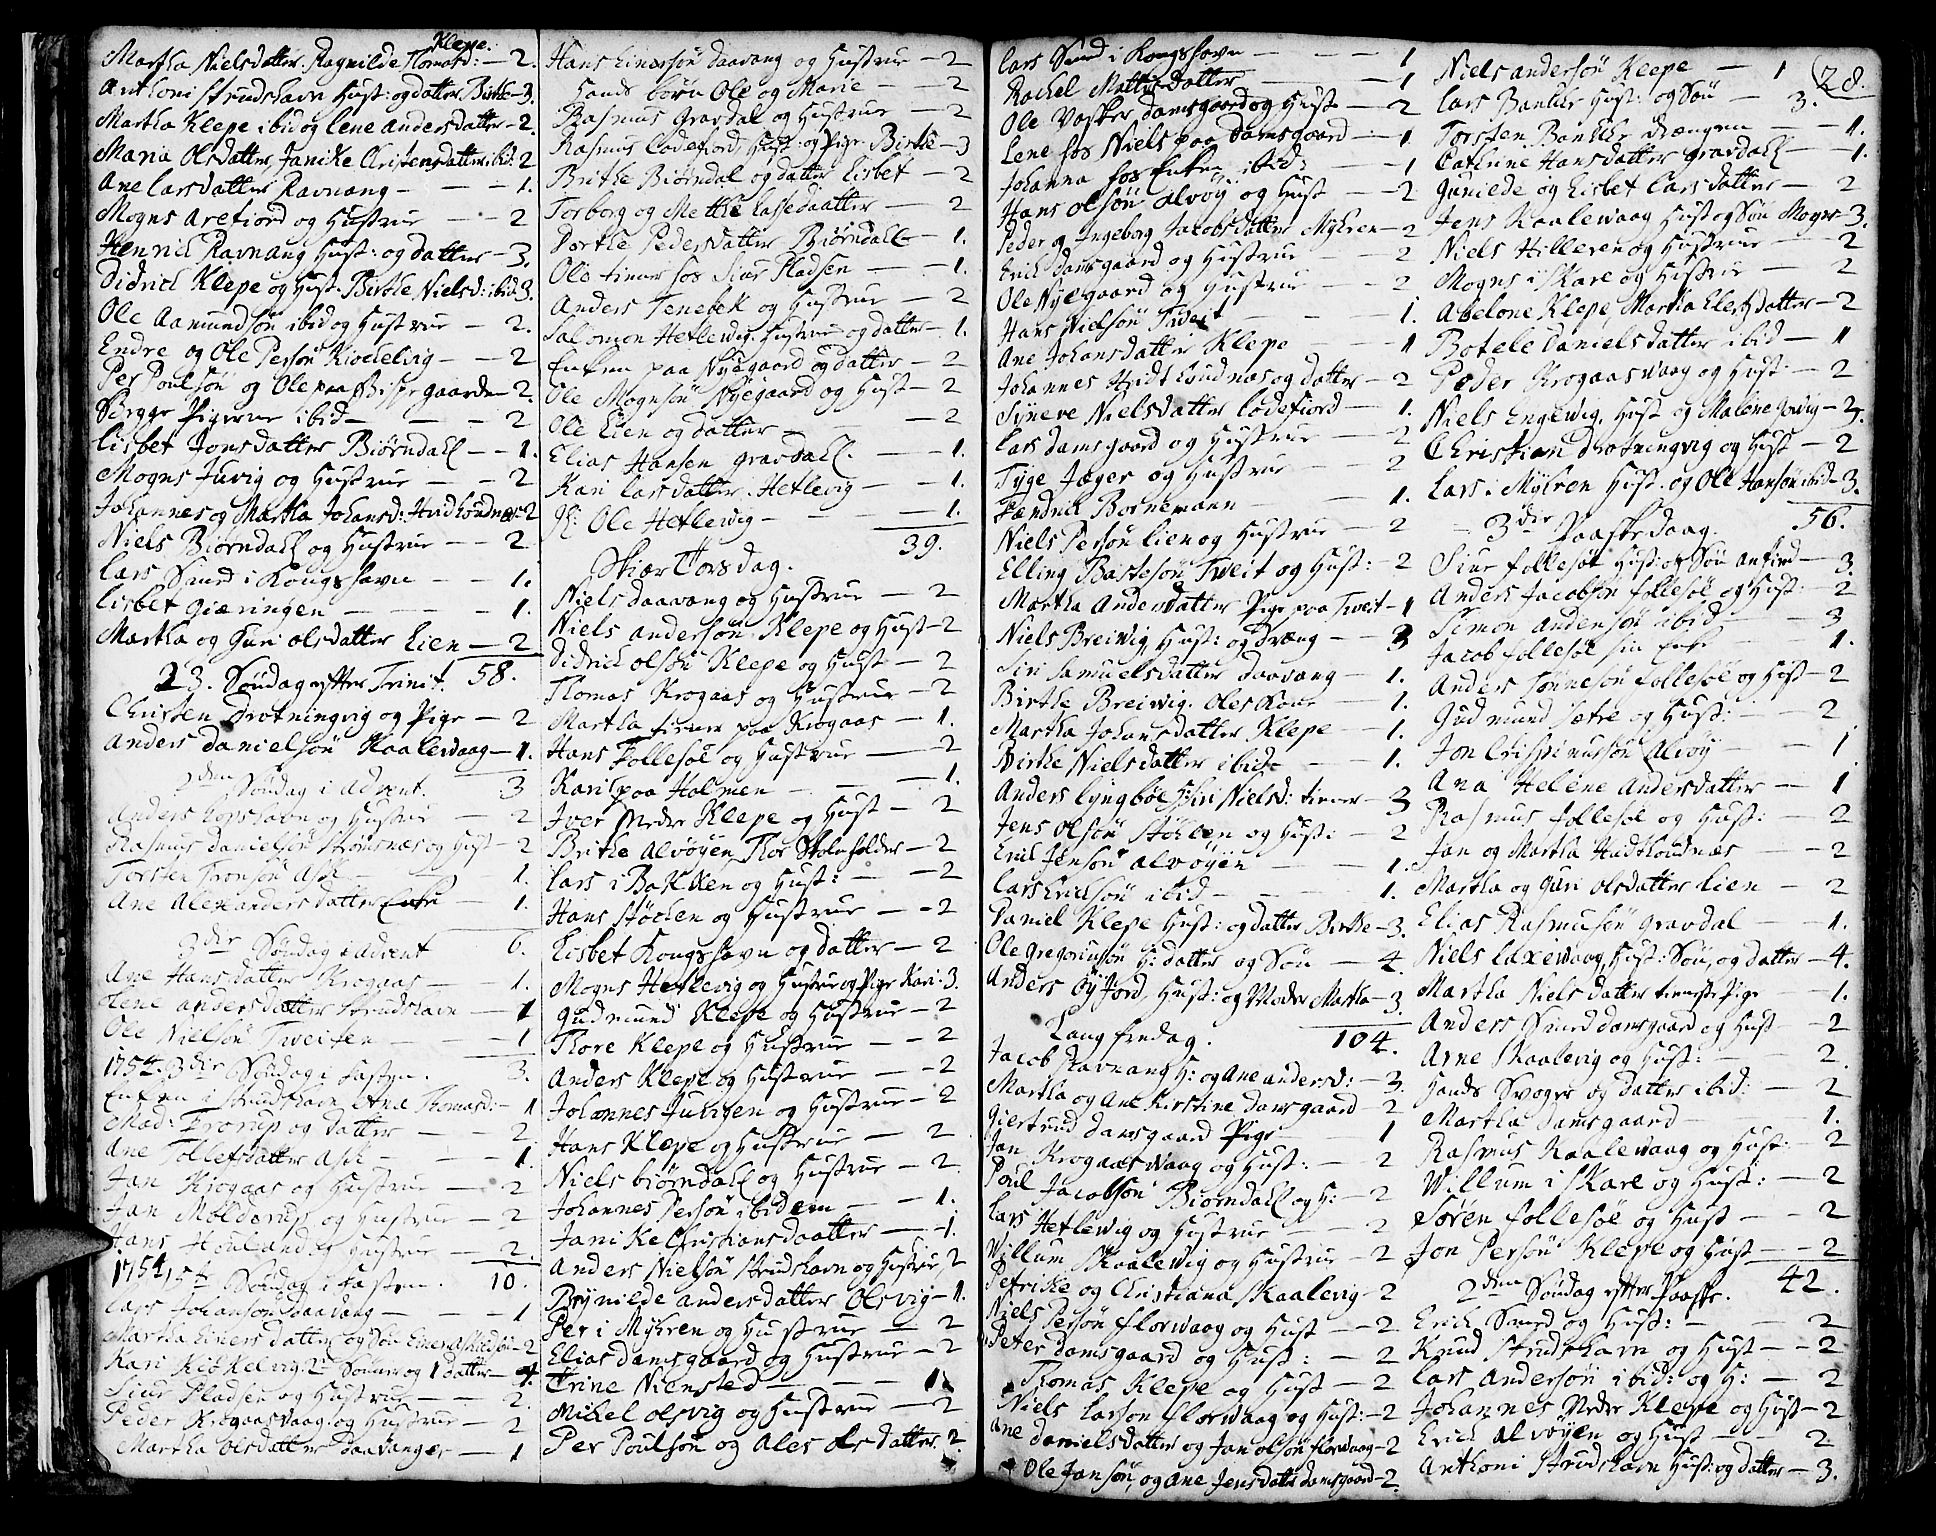 Klepe.
Martha Nielsdatter. Ragnilde Thomasd: — 2.
Anthoni Strudshavn Hust: og datter Birthe — 3.
Martha Klepe ibid og Lene Andersdatter — 2.
Maria Olsdatter, Janike Christensdatter ibid: 2
Ane Larsdatter Ravnang — — — 1.
Mogns Arefiord og Hustrue — — 2
Henrich Ravnang Hust: og datter — 3.
Didrich Klepe og Hust. Birthe Nielsd: ibid 3.
Ole Aamundsön ibid og Hustrue — 2.
Endre og Ole Persön Kiökkelvig — — 2
Per Poulsön og Ole paa Bispegaarden 2.
Pigerne ibid — — — 2
Lisbet Jonsdatter Biørndall — — 1.
Mogns Juvig og Hustrue — — 2
Johannes og Martha Johansd: Hvidhoudnæs 2
Niels Biørndall og Hustrue — — 2
Lars Smed i Kongshavn — — 1.
Lisbet Giæringen — — — 1.
Martha og Guri Olsdatter Lien — 2
23. Söndag efter Trinit. 58.
Christen Drotningvig og Pige — 2
Anders Danielsön Kaalevaag — 1.
2den Söndag i Advent. 3
Anders Kopshavn og Hustrue — 2
Rasmus Danielsön Strømsnæs og Hust — 2
Torsten Tronsön Ask — 1.
Ane Alexandersdatter Enke — 1.
3die Söndag i Advent 6.
Ane Hansdatter Krogaas — — 1.
Lene Andersdatter Strudshavn — 1
Ole Nielsön Tweiten — — 1
1754. 3die Söndag i Fasten. 3.
Enken i Strudshavn Ane Thomasd: — 1
Mad: Frorup og datter — — 2
Ane Tollefsdatter Ask — — — 1.
Jan Krogaas og Hustrue — 2
Jan Molderup og Hustrue — 2
Hans Houland og Hustrue — 2.
1754 5te Söndag i Fasten. 10.
Lars Johansön Daavang — — 1
Martha Einersdatter og Sön Einer Askildsön — 2
Kari Kiökkelvig. 2de Sönner og 1 datter — 4.
Siur Pladsen og Hustrue — — 2.
Peder Krogaasvaag og Hustrue — 2
Martha Olsdatter Daavanger — 1
Hans Einersön Daavang og Hustrue — 2
Hands börn Ole og Marie — — 2
Rasmus Gravdal og Hustrue — 2
Rasmus Lodefiord Hust: og Pige Birthe — 3
Brithe Biørndal og datter Lisbet — 2
Torborg og Mette Lassedaatter — 2
Dorthe Pedersdatter Biørndall — 1.
Ole tiener hos Siur Pladsen — — 1.
Anders Tenebek og Hustrue — 2
Salomon Hetlevig. Hustrue og datter — 1.
Enken paa Nyegaard og datter — 2
Ole Mognsön Nyegaard og Hust — 2
Ole Lien og datter — — — 2
Elias Hansen Gravdall — — 1.
Kari Larsdatter. Hetlevig — — 1.
Ole Hetlevig — — — 1.
39.
Skiær Torsdag.
Niels Daavang og Hustrue — — 2
Niels Andersön Klepe og Hust — 2
Didrich Olsön Klepe og Hust — 2
Thomas Krogaas og Hustrue — 2
Martha tiener paa Krogaas — 1.
Hans Follesøe og Hustrue — — 2
Kari paa Holmen — — — 1.
Iver Nedre Klepe og Hust — 2
Brithe Alvøyen, Thor Stoleholder — 2
Lars i Bakken og Hust: — — 2
Hans Støchen og Hustrue — — 2
Lisbet Kongshavn og datter — 2
Mogns Hetlevig og Hustrue og Pige Kari: 3.
Gudmund Klepe og Hustrue — 2
Thore Klepe og Hustrue — — 2
Anders Klepe og Hustrue — — 2
Johannes Juvigen og Hustrue — 2
Hans Klepe og Hustrue — — 2
Niels Biørndall og Hustrue — 2.
Johannes Persön ibidem — — 1.
Janike Christiansdaatter — — 1.
Anders Nielsön Strudshavn og Hustrue, 2
Brynilde Andersdatter Olsvig — 1.
Per i Myhren og Hustrue — — 2
Elias Damsgaard og Hustrue — 2
Trine Niensted — — — 1.
Mikel Olsvig og Hustrue — — 2
Per Poulsön og Ales Olsdatter. 2
Lars Smed i Kongshavn — — — 1
Rachel Mattisdatter — — — 1
Ole Vasker Damsgaard og Hust — 2
Lene hos Niels paa Damsgaard — 1
Johanna hos Enken ibid: — — 1
Hans Olsön Alvøy og Hust — 2
Peder og Ingeborg Jacobsdatter Myhren — 2
Erich Damsgaard og Hustrue — — 2
Ole Nyegaard og Hustrue — — 2
Hans Nielsön Tweit — — — 1.
Ane Johansdatter Klepe — — 1
Johannes Hvidhoudnæs og datter — 2
Syneve Nielsdatter Lodefiord — 1.
Lars Damsgaard og Hustrue — — 2
Tyge Jæger og Hustrue — — 2
Hendrich Bornemann — — 1.
Niels Persön Lien og Hustrue — 2
Elling Bastesön Tweit og Hust: — 2
Martha Andersdatter Pige paa Tweit — 1
Niels Breivig, Hust: og Dreng — 3
Siri Samuelsdatter Daavang — 1.
Birthe Breivig. Oles Kone — 1.
Martha Johansdatter Klepe — 1.
Birthe Nielsdatter ibid — — 1.
Anders Lyngbøe Siri Nielsd: tiener — 3
Jens Olsön Støhlen og Hust: — 2
Erich Jensön Alvøyen — — 1.
Lars Erichsön ibid — — — 1.
Daniel Klepe Hust: og datter Birthe — 3.
Ole Gregoriusön H: datter og Sön — 4.
Anders Øyjord, Hust: og Moder Martha — 3.
Lang fredag. 104.
Jacob Ravnang H: og Ane Andersd: — 3.
Martha og Ane Kirstine Damsgaard — 2
Giertrud Damsgaard Pige — 1
Jan Krogaasvaag og Hust: — 2
Poul Jacobsön Biørndall og H: — 2
Lars Hetlevig og Hustrue — 2
Willum Skaalevig og Hustrue — 2
Petrike og Christiana Skaalevig — 2
Niels Persön Florvaag og Hust — 2
Peter Damsgaard og Hust: — 2
Thomas Klepe og Hust — 2
Niels Larsön Florvaag og Hust: — 2
Ane Danielsdatter og Jan Olsön Florvaag — 2
Ole Jansön, og Ane Jensdatter Damsgaard — 2.
28.
Niels Andersön Klepe — 1
Lars Bankke Hust: og Sön — 3.
Torsten Bankke drængen — — 1.
Cathrine Hansdatter Gravdall — 1.
Gunilde og Lisbet Larsdatter — 2
Jens Kaalevaag Hust og Sön Mogns — 3.
Niels Hilleren og Hustrue — — 2
Mogns i Skare og Hustrue — — 2
Abelone Klepe, Martha Elertsdatter — 2
Botele Danielsdatter ibid — 1
Peder Krogaasvaag og Hust — 2
Niels Engevig, Hust og Malene Juvig — 3.
Christian Drotningvig og Hust — 2
Lars i Myhren Hust. og Ole Hansön ibid — 3.
3die Paaskedaag. 56.
Siur Follesøe Hust: og Sön Anfind — 3
Anders Jacobsön Follesøe og Hust: — 2
Simon Andersön ibid — — 3
Jacob Follesøe sin Enke — 1.
Anders Tönnesön Follesøe og Hust — 2
Gudmund Sætre og Hust: — 2
Jon Crispinusön Alvøy — — 1
Ana Helene Andersdatter — 1
Rasmus Follesøe og Hust: — 2
Jan og Martha Hvidhoudnæs — 2
Martha og Guri Olsdatter Lien — 2
Elias Rasmusön Gravdal — 1.
Niels Laxevaag, Hust: Sön, og datter — 4.
Martha Nielsdatter tieneste Pige — 1.
Anders Smed Damsgaard og Hust — 2
Arne Skaalevig og Hust: — — 2
Hands Svoger og datter ibid: — 2
Martha Damsgaard — — 1.
Rasmus Kaalevaag og Hust: — 2
Willum i Skare og Hust: — 2
Sören Follesøe og Hust — — 2
Jon Persön Klepe og Hust — — 2
2den Söndag efter Paaske. 42.
Erich Smed og Hust: — — 2
Knud Strudshavn og Hust — — 2
Lars Andersön ibid: og H: — 2
Johannes Nedre Klepe og Hust — 2
Erich Alvøyen og Hust — — 2
Anthoni Strudshavn Hust: og datter — 3.